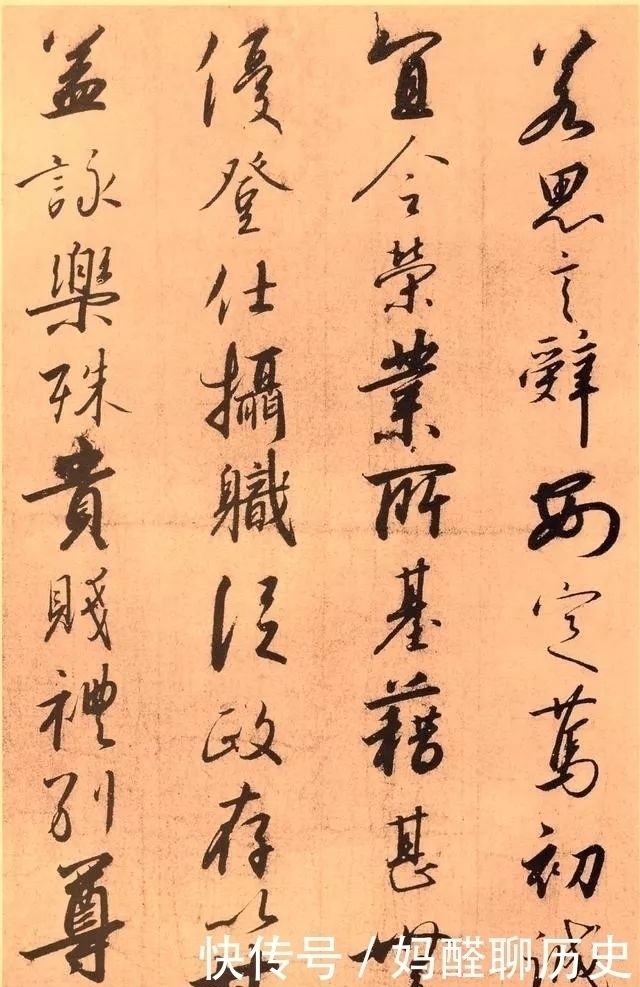 若思言辭安定篤初誠
宜令榮業所基藉甚無
優登仕攝職從政存以
益詠樂殊貴賤禮別尊
快传号/妈醛聊历史